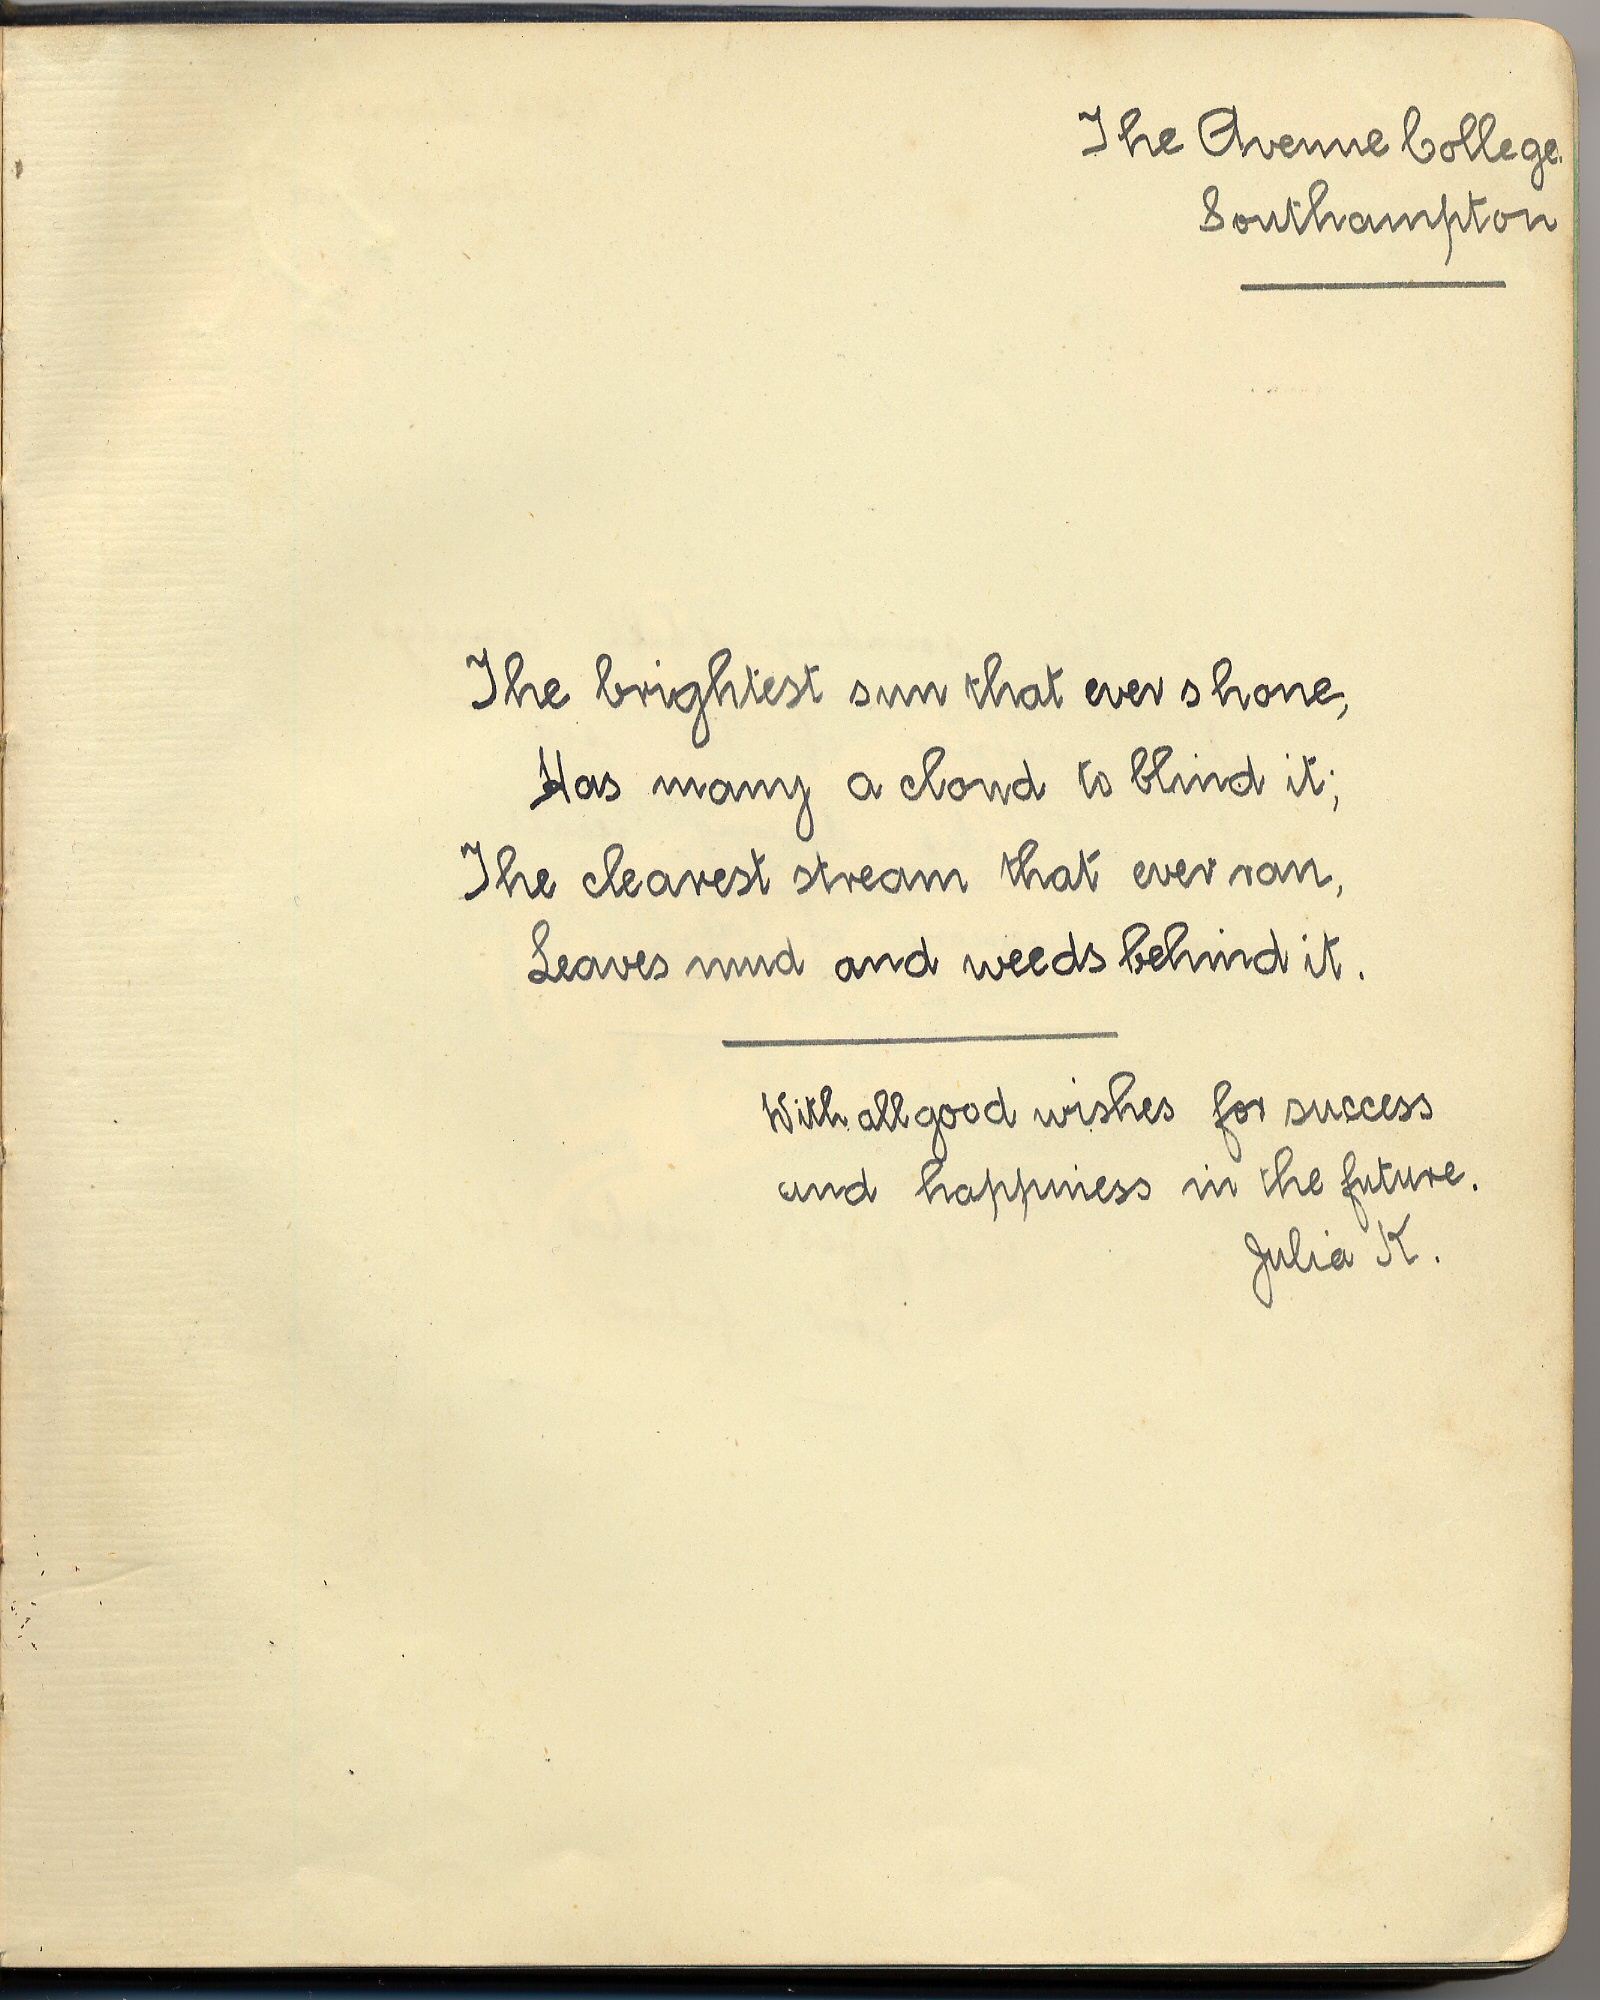 The Avenue College.
Southampton
The brightest sun that ever shone,
Has many a cloud to blind it;
The clearest stream that ever ran,
Leaves mud and weeds behind it.
With all good wishes for success
and happiness in the future.
Julia K.